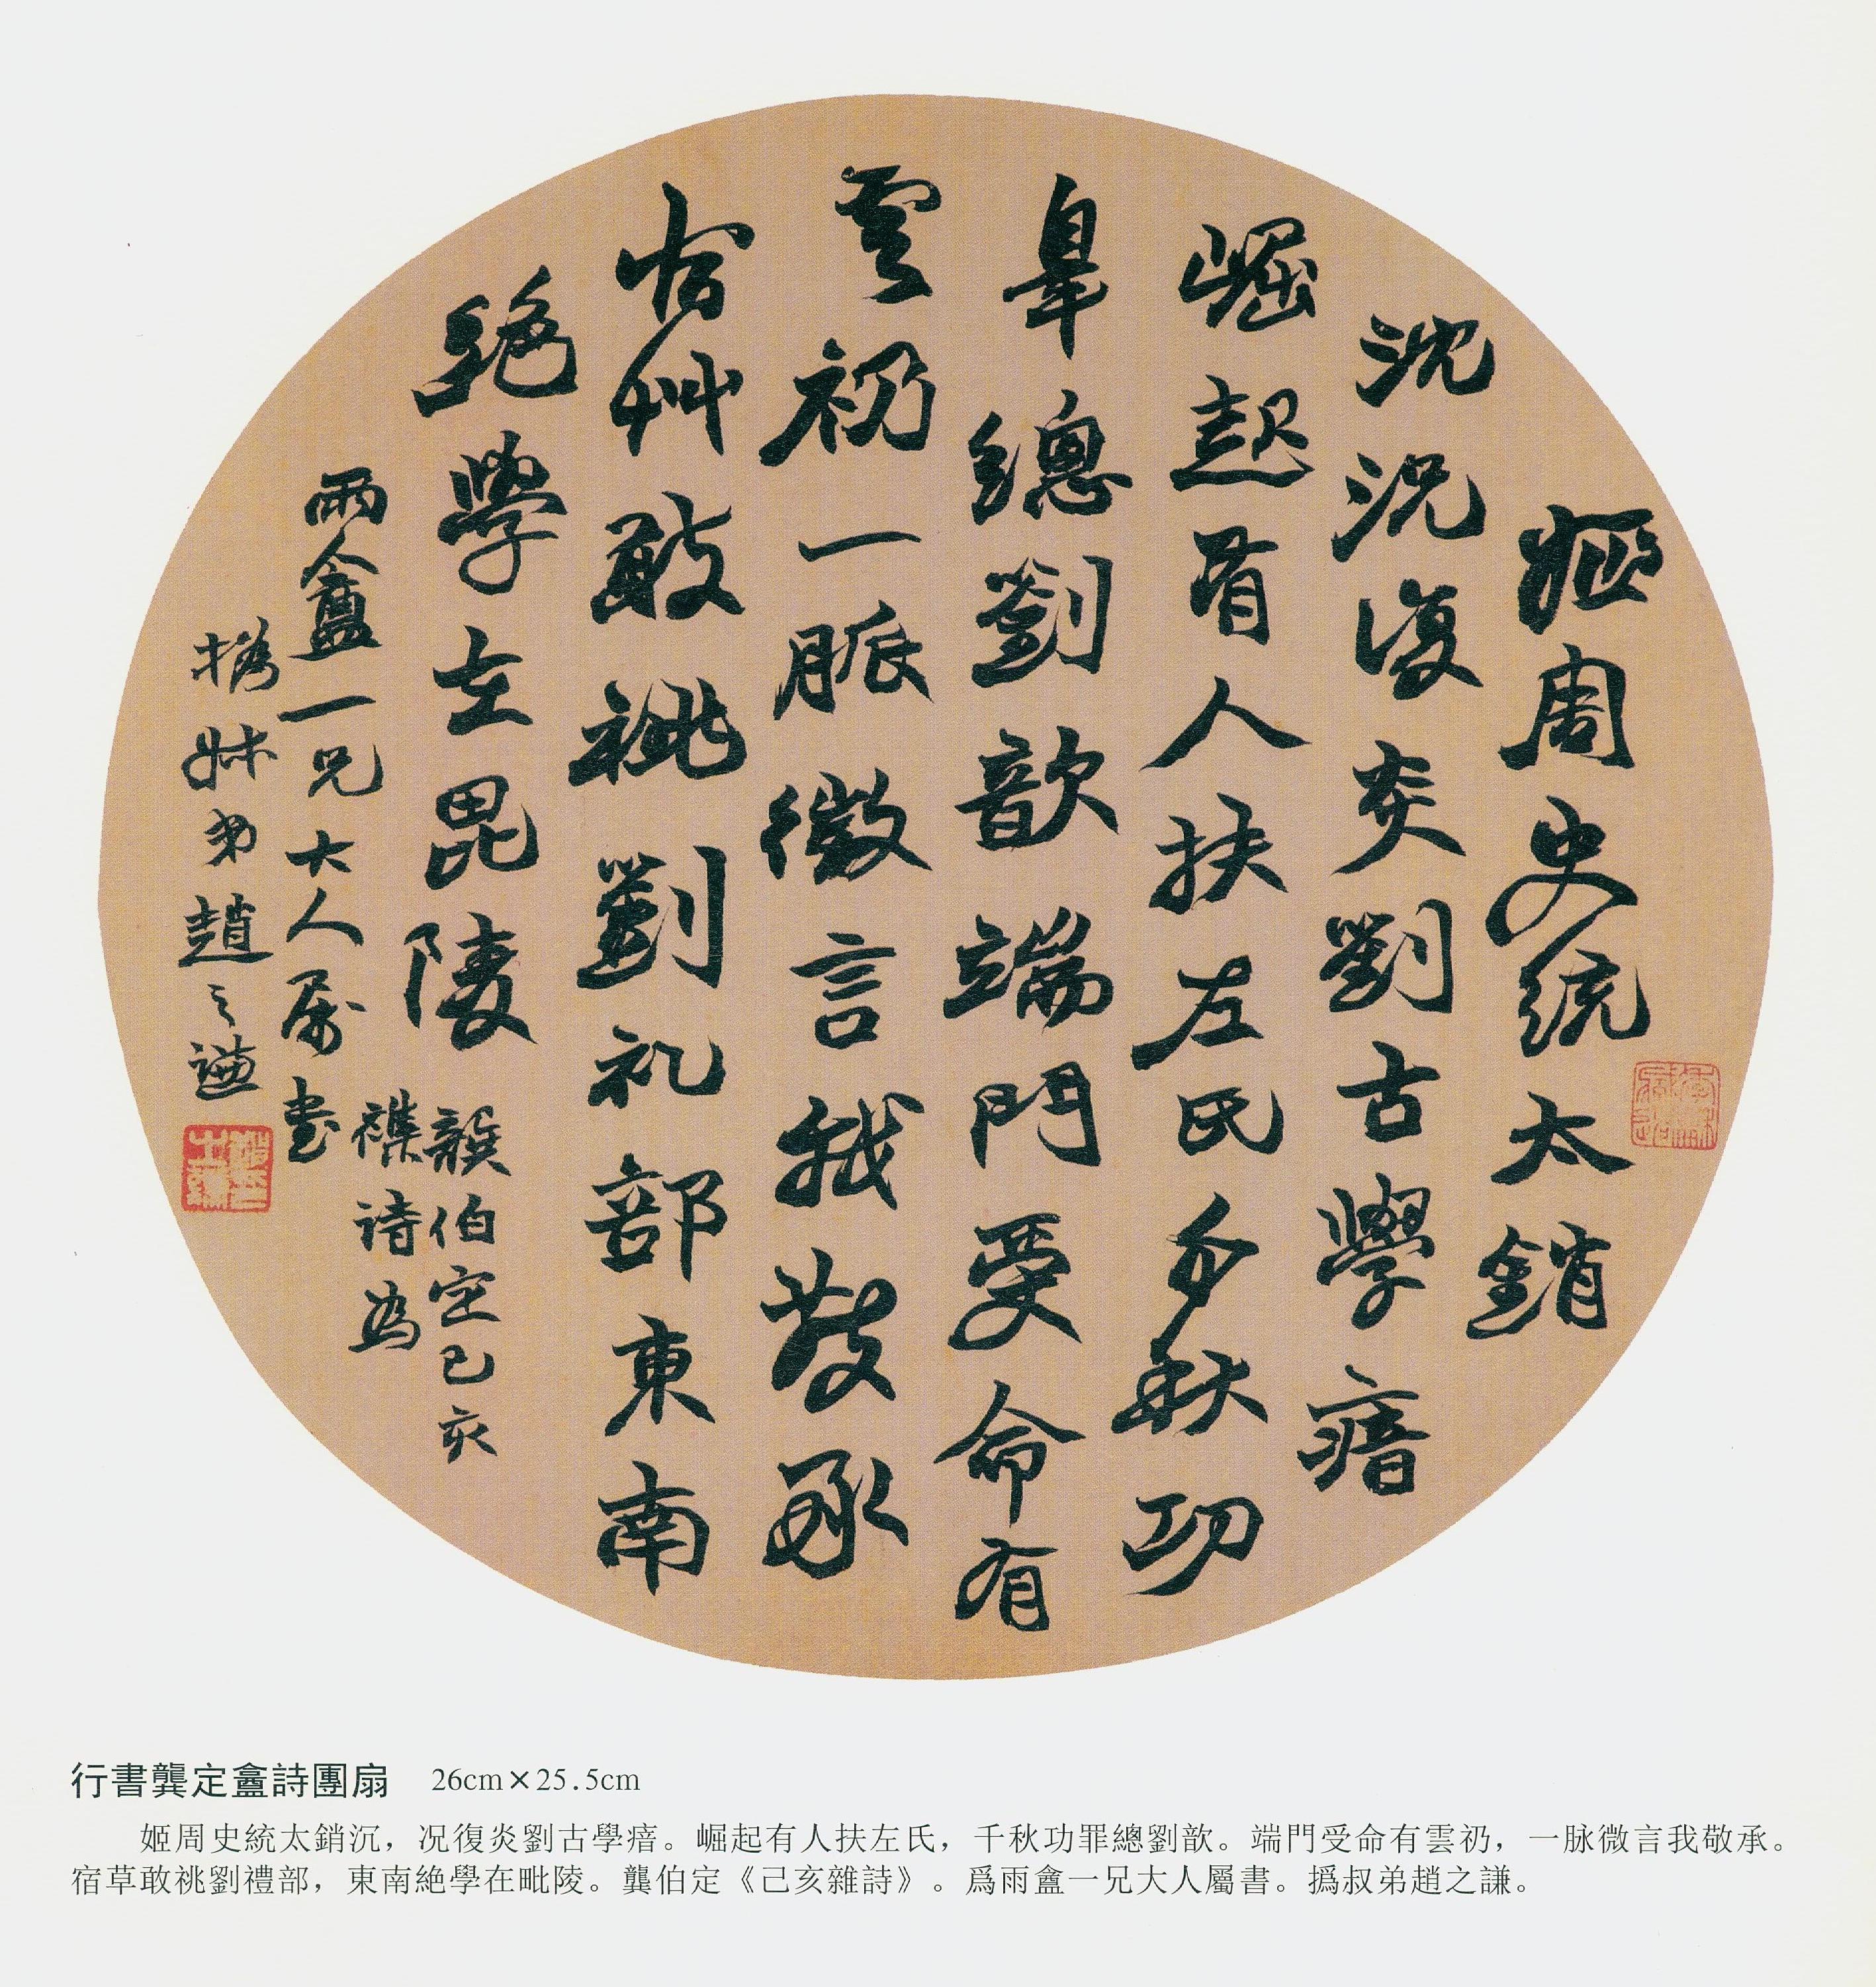 姬周史統太銷
沈况復炎劉古學瘖
崛起有人扶左氏千秋功
辠總劉歆端門受命有
雲礽一脈微言我敬承
宿艸敢祧劉礼部東南
絕學在毘陵
龔伯定己亥
襍詩為
雨盦一兄大人屬書
撝尗弟趙之謙
行書龔定盦詩團扇 26cm×25.5cm
姬周史統太銷沉，况復炎劉古學瘖。崛起有人扶左氏，千秋功罪總劉歆。端門受命有雲礽，一脉微言我敬承。
宿草敢祧劉禮部，東南絕學在毗陵。龔伯定《己亥雜詩》。爲雨盦一兄大人屬書。撝叔弟趙之謙。